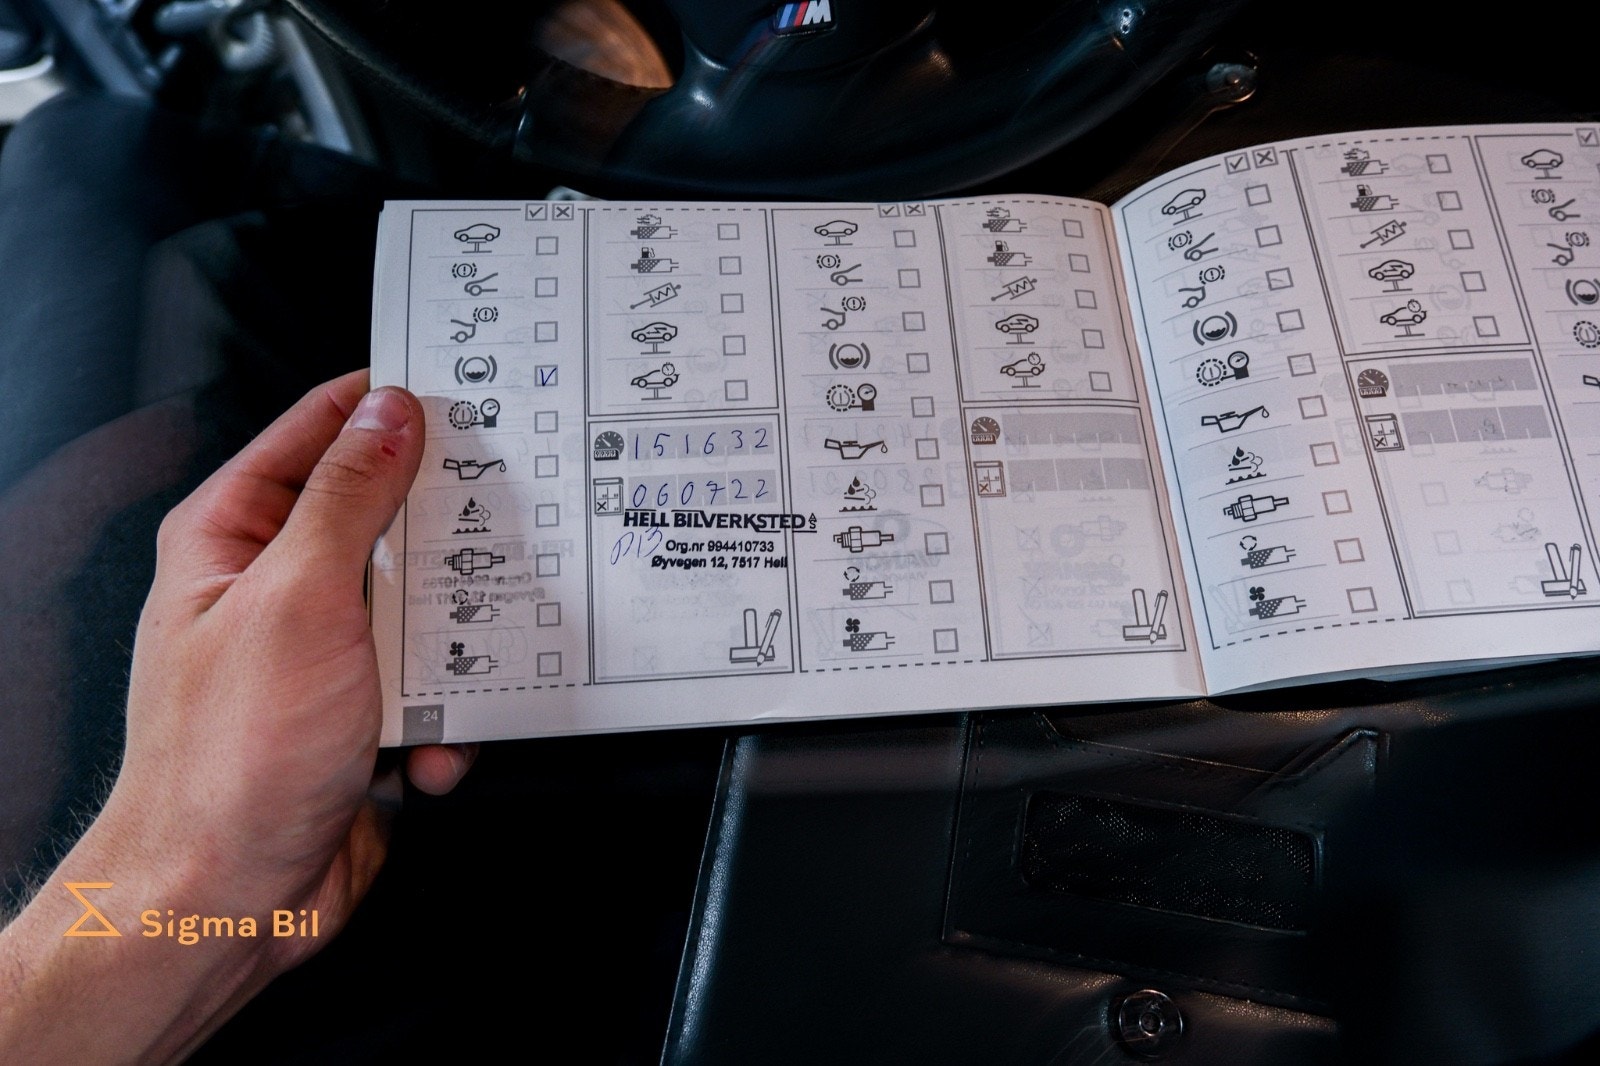 M
151632
060722
HELL BILVERKSTED AS
Org.nr 994410733
Øyvegen 12, 7517 Hell
24
Sigma Bil